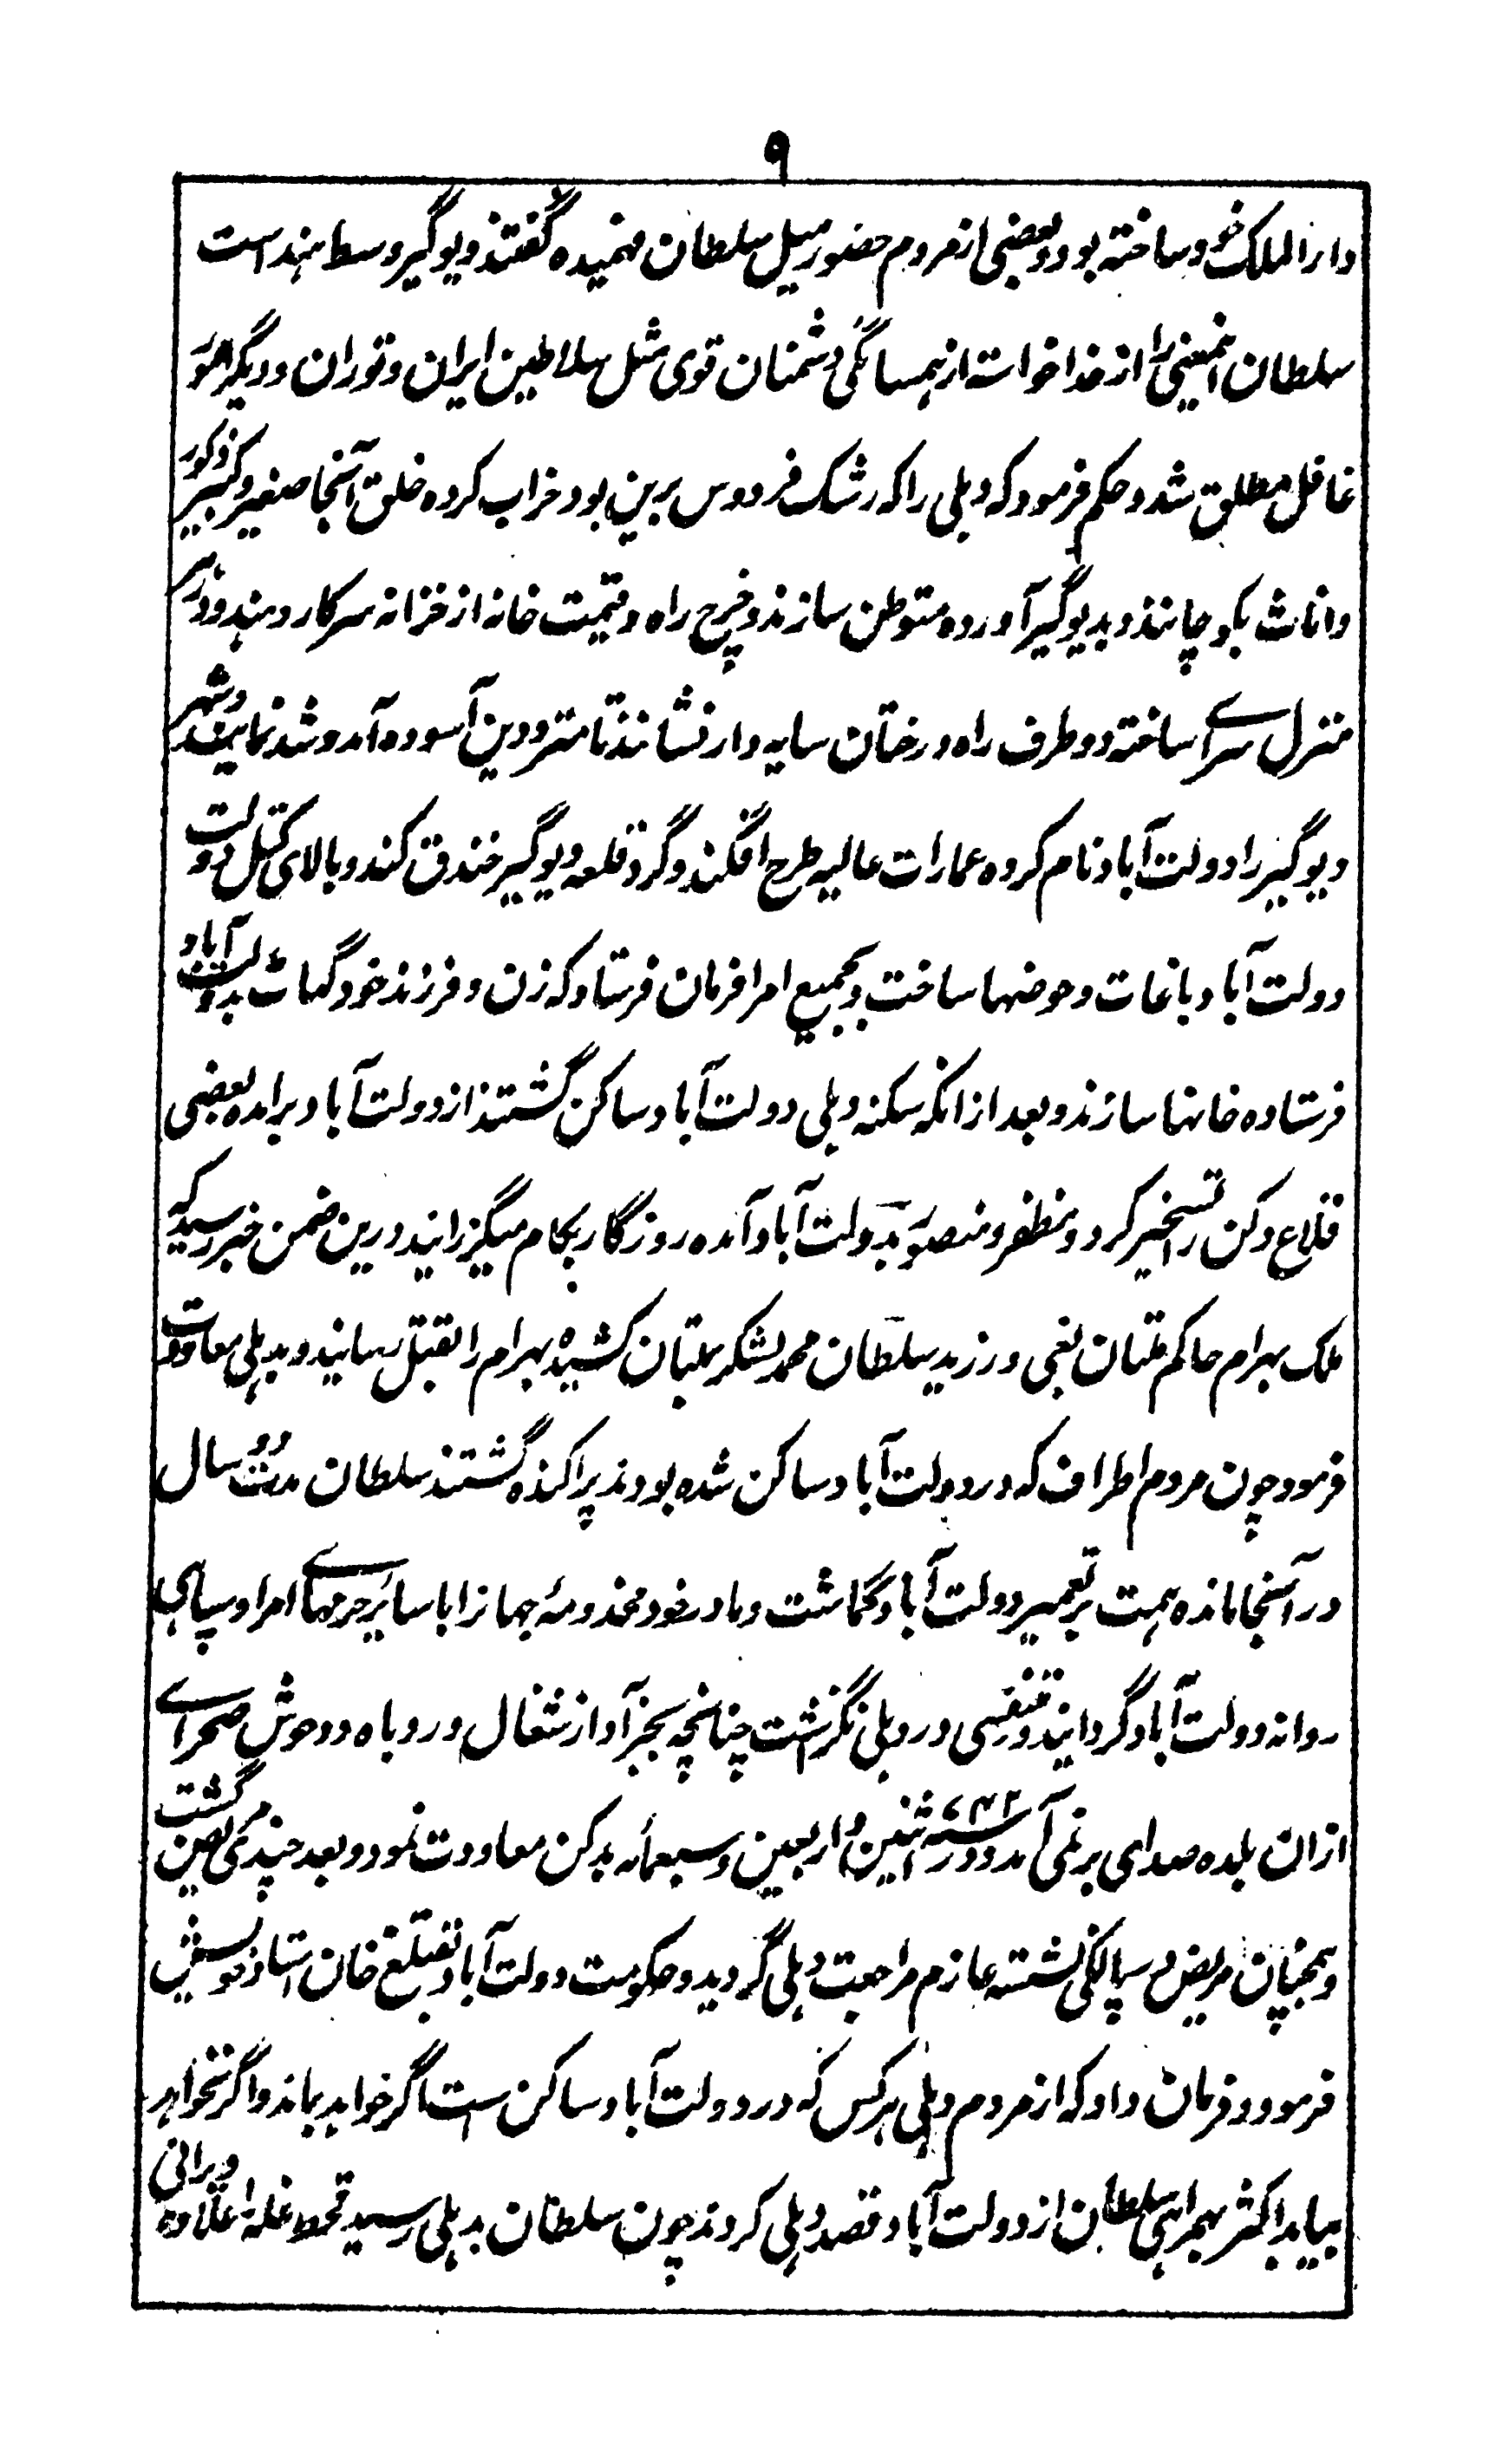 ۹
دارالملک خود ساخته بود و بعضی از مردم حضور میل سلطان فهمیده گفتند دیوگیر وسط هند است
سلطان اینمعنی را از خدا خواسته از همسائگی دشمنان قوی مثل سلاطین ایران و توران و دیگر امور
غافل مطلق شد و حکم فرمود که دهلی را که رشک فردوس برین بود خراب کرده خلق آنجا صغیر و کبیر ذکور
و اناث بکوچانند و بدیوگیر آورده متوطن سازند و خرچ راه و قیمت خانه از خزانه سرکار دهند و در هر
منزل سراے ساخته دو طرف راه درختان سایه دار نشانند تا مترددین آسوده آمد و شد نمایند و شهر
دیوگیر را دولت آباد نام کرده عمارات عالیه طرح افگند و گرد قلعه دیوگیر خندق کند و بالای کتل دولت
دولت آباد باغات و حوضها ساخت و بجمیع امرا فرمان فرستاد که زن و فرزند خود گهاٹ بدولت آباد
فرستاده خانها سازند و بعد از انکه سکنه دهلی دولت آباد ساکن گشتند از دولت آباد برامده بعضی
قلاع دکن را تسخیر کرد و مظفر و منصور بدولت آباد آمده روزگار بکام میگزرانید درین ضمن خبر رسید که
ملک بهرام حاکم ملتان بغی ورزید سلطان محمد لشکر بملتان کشیده بهرام را بقتل رسانید و بدهلی معاودت
فرمود چون مردم اطراف که در دولت آباد ساکن شده بودند پراکنده گشتند سلطان مدت دو سال
در آنجا مانده همت بر تعمیر دولت آباد گماشت و مادر خود مخدومۀ جهانرا با سائر حرمهاے امرا و سپاهی
روانه دولت آباد گردانید و متنفسی در دهلی نگزاشت چنانچه بجز آواز شغال و روباه و وحوش صحراے
ازان بلده صدای برنمی آمد و در سنه ۷۴۲ اثنین و اربعین و سبعمأه بدکن معاودت نمود و بعد چندی مریض گشت
و همچنان مریض در پالکی نشسته عازم مراجعت دهلی گردید و حکومت دولت آباد بقتلغ خان استاد خویش
فرمود و فرمان داد که از مردم دهلی هر کس که در دولت آباد ساکن ست اگر خواهد بماند و اگر نخواهد
بیاید اکثر بهمراهی سلطان از دولت آباد قصد دهلی کردند چون سلطان بدهلی رسید قحط غله علاوه ویرانی